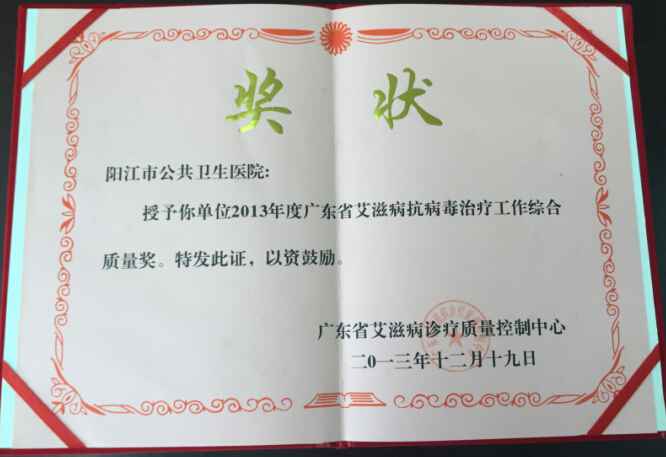 奖状
阳江市公共卫生医院:
授予你单位2013年度广东省艾滋病抗病毒治疗工作综合
质量奖。特发此证，以资鼓励。
广东省艾滋病诊疗质量控制中心
二0一三年十二月十九日